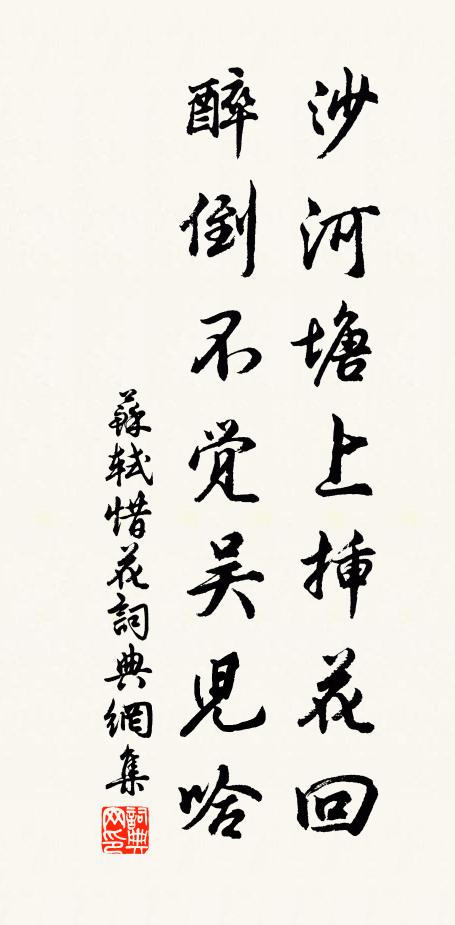 沙河塘上插花回
醉倒不觉吴児咍
蘇軾惜花詞典網集
詞典网印